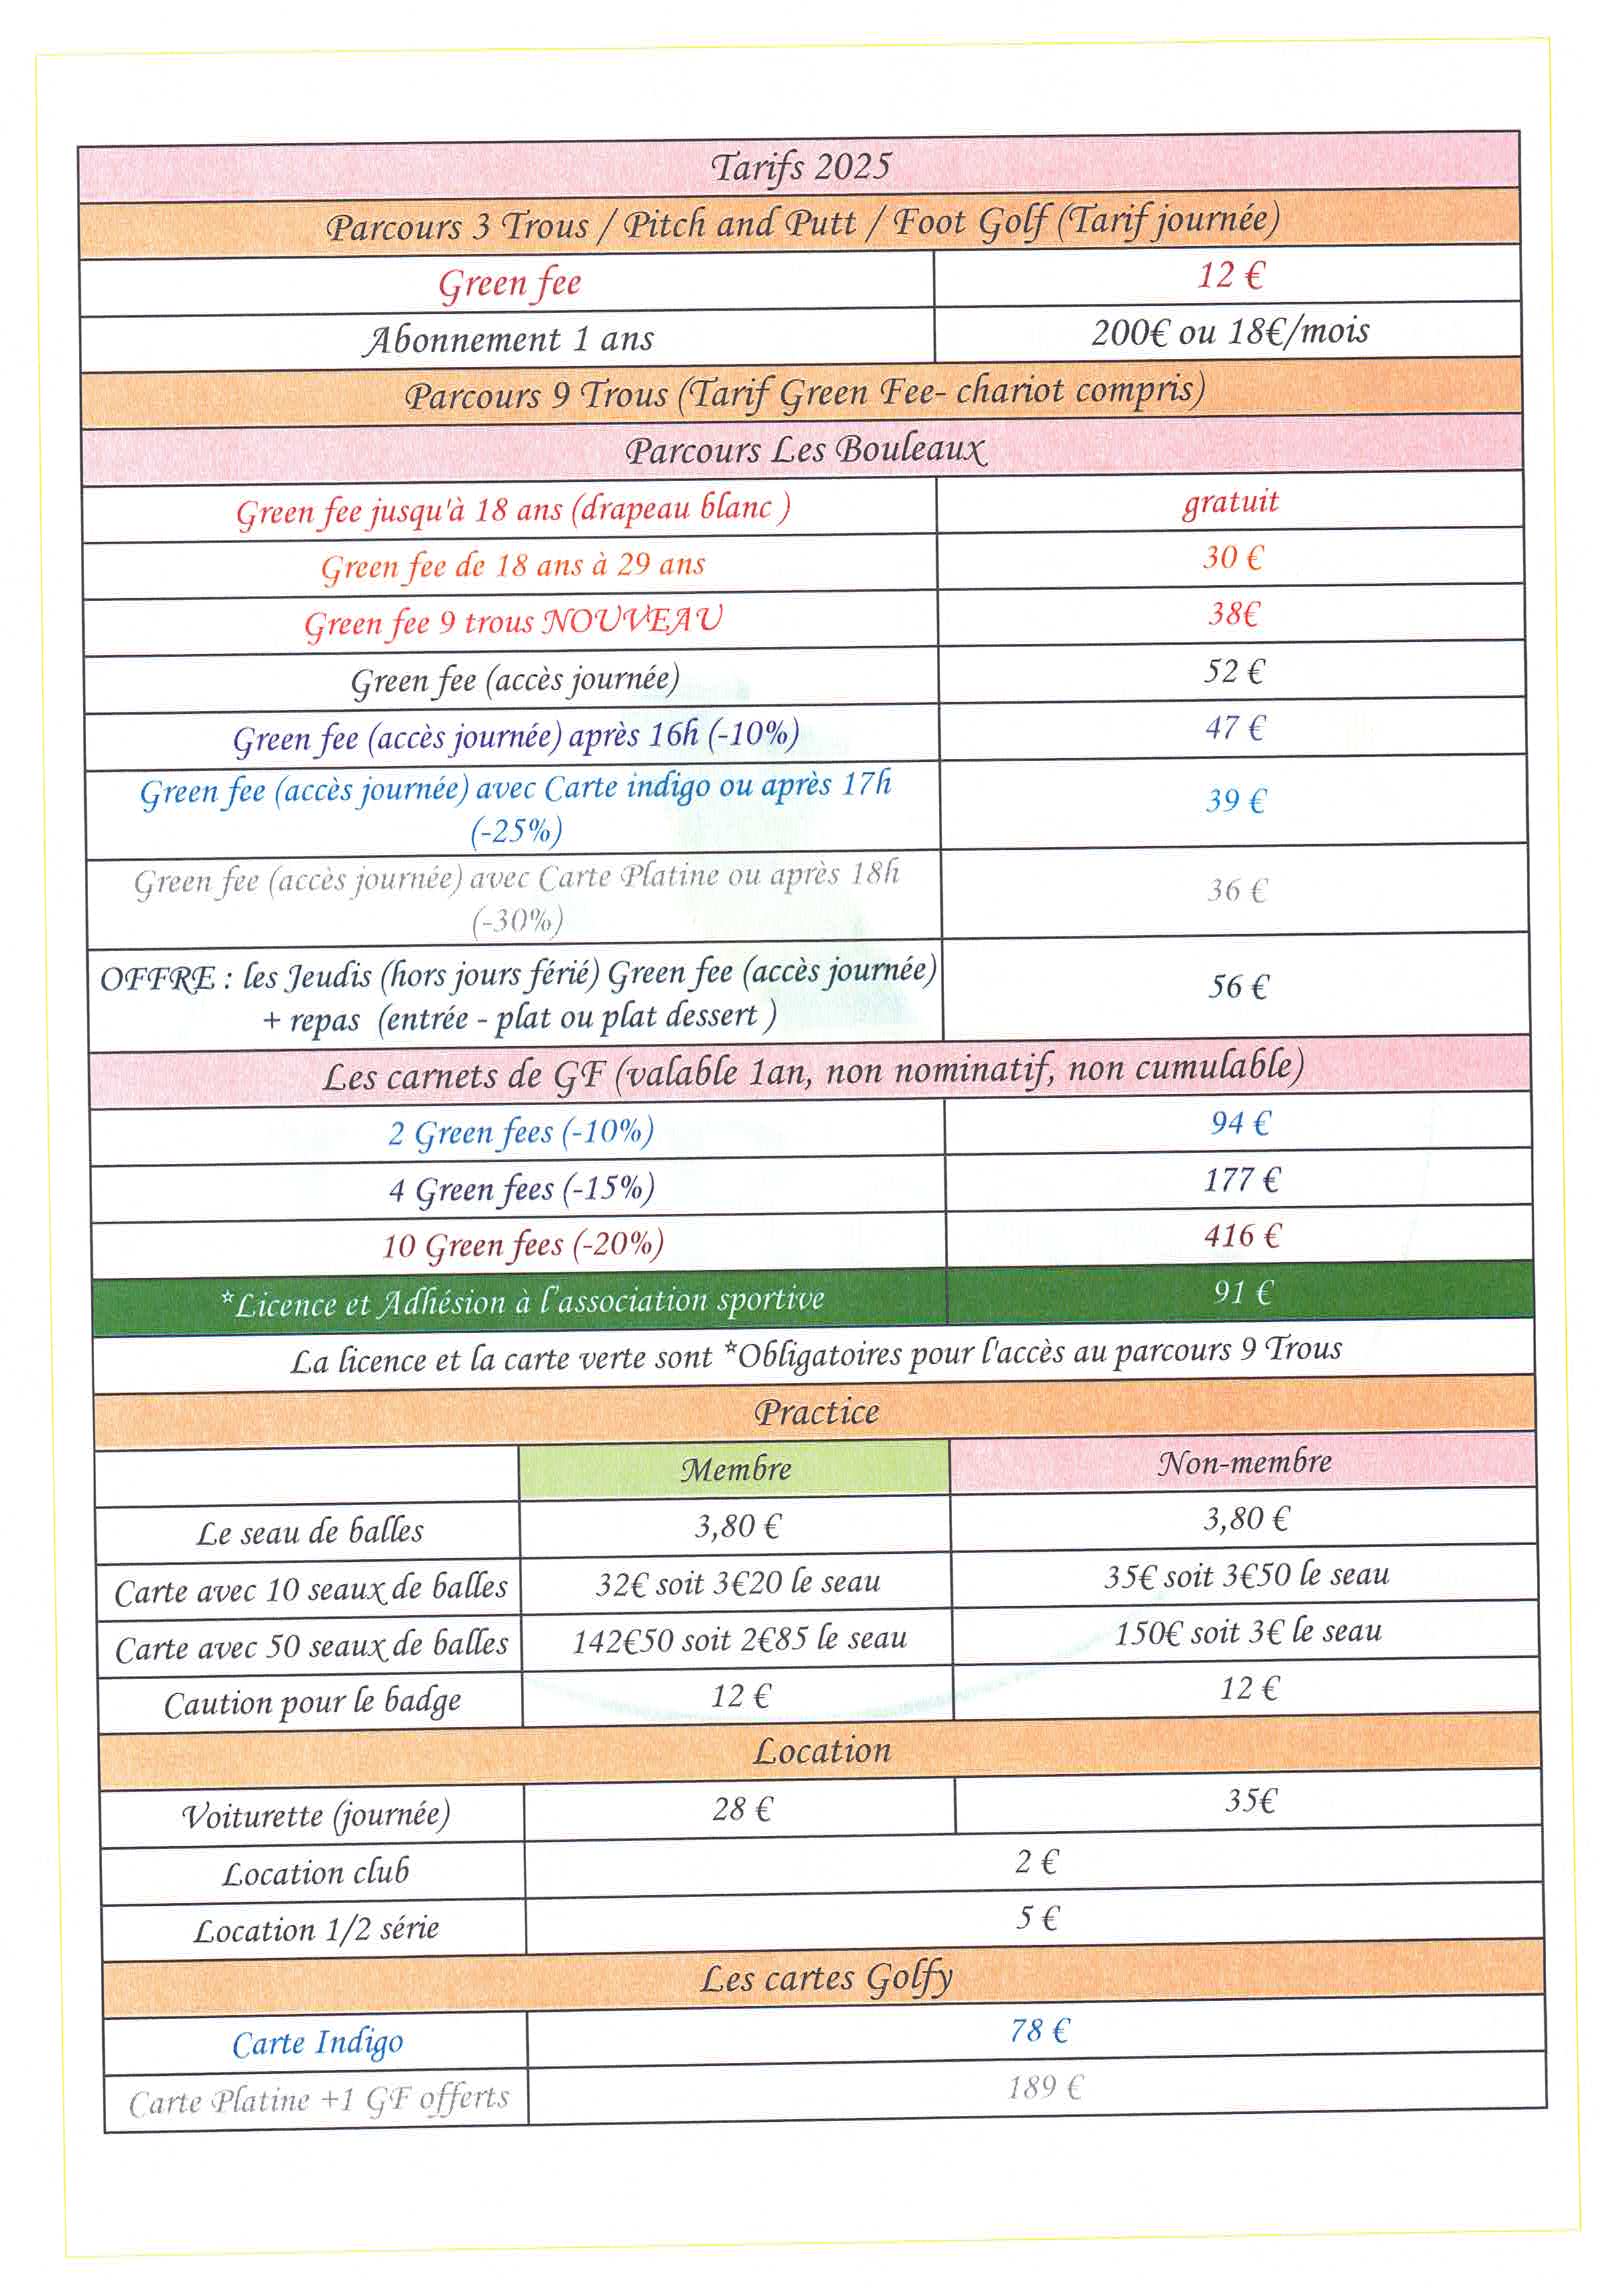 Tarifs 2025
Parcours 3 Trous / Pitch and Putt / Foot Golf (Tarif journée)
Green fee 12 €
Abonnement 1 ans 200€ ou 18€/mois
Parcours 9 Trous (Tarif Green Fee- chariot compris)
Parcours Les Bouleaux
Green fee jusqu'à 18 ans (drapeau blanc ) gratuit
Green fee de 18 ans à 29 ans 30 €
Green fee 9 trous NOUVEAU 38€
Green fee (accès journée) 52 €
Green fee (accès journée) après 16h (-10%) 47 €
Green fee (accès journée) avec Carte indigo ou après 17h
(-25%)
39 €
Green fee (accès journée) avec Carte Platine ou après 18h
(-30%)
36 €
OFFRE : les Jeudis (hors jours férié) Green fee (accès journée)
+ repas (entrée - plat ou plat dessert )
56 €
Les carnets de GF (valable 1an, non nominatif, non cumulable)
2 Green fees (-10%) 94 €
4 Green fees (-15%) 177 €
10 Green fees (-20%) 416 €
*Licence et Adhésion à l'association sportive 91 €
La licence et la carte verte sont *Obligatoires pour l'accès au parcours 9 Trous
Practice
Membre Non-membre
Le seau de balles 3,80 € 3,80 €
Carte avec 10 seaux de balles 32€ soit 3€20 le seau 35€ soit 3€50 le seau
Carte avec 50 seaux de balles 142€50 soit 2€85 le seau 150€ soit 3€ le seau
Caution pour le badge 12 € 12 €
Location
Voiturette (journée) 28 € 35€
Location club 2 €
Location 1/2 série 5 €
Les cartes Golfy
Carte Indigo 78 €
Carte Platine +1 GF offerts 189 €